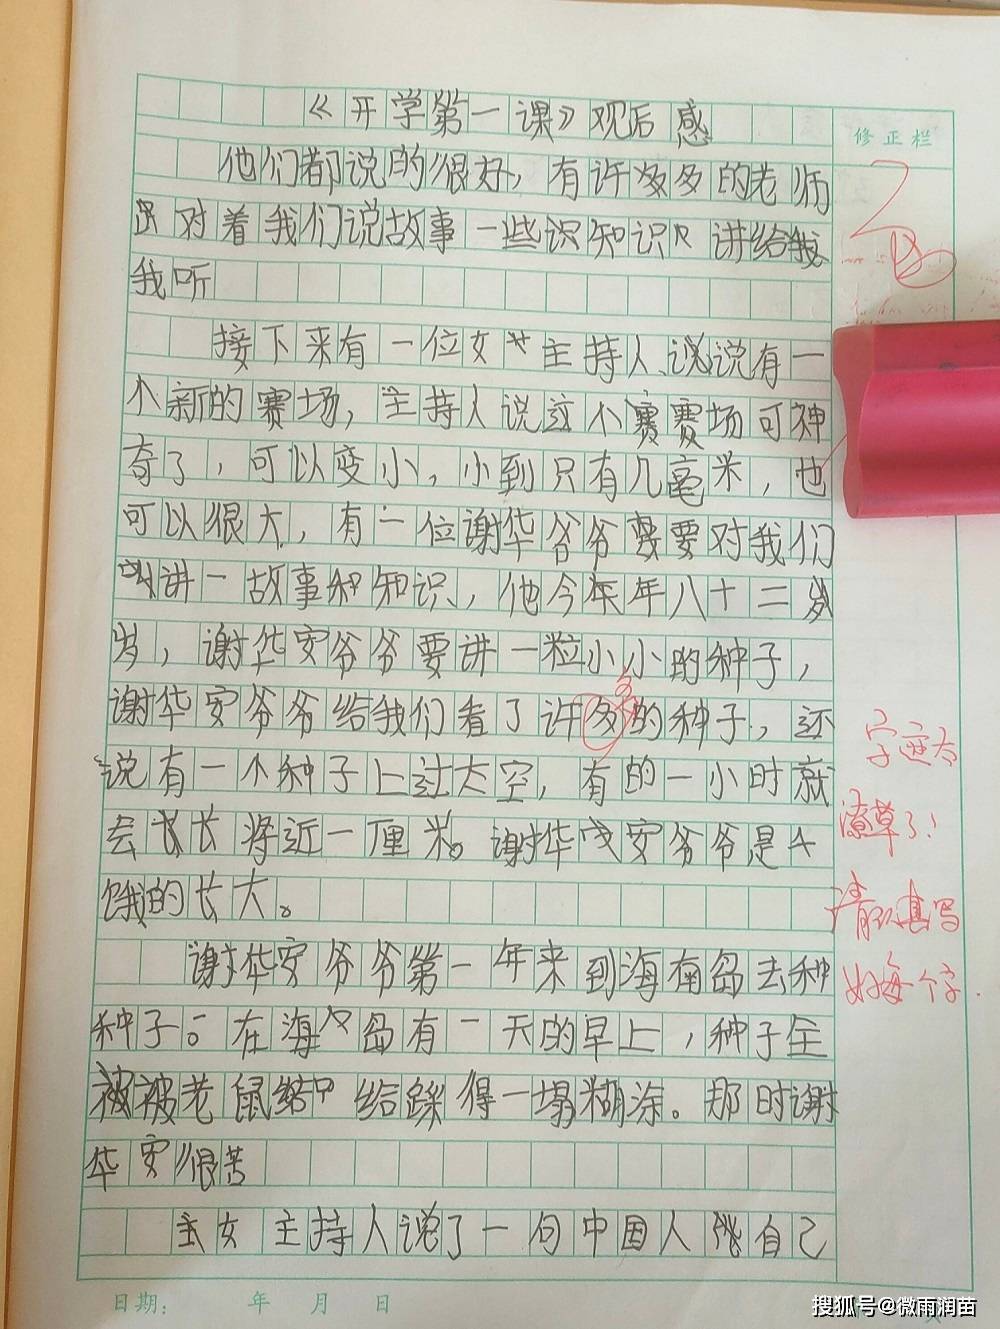 《开学第一课》观后感
修正栏
他们都说的很好，有许多多的老师
对着我们说故事一些识知识 讲给我
我听
接下来有一位女 主持人说说有一
个新的赛场，主持人说这个赛赛场可神
奇了，可以变小，小到只有几毫米，也
可以很大，有一位谢华爷爷要要对我们
讲一故事和知识，他今年年八十二岁
岁，谢华安爷爷要讲一粒小小的种子，
多
谢华安爷爷给我们看了许多的种子，还
说有一个种子上过太空，有的一小时就
会长长将近一厘米。谢华 安爷爷是
饿的长大。
谢华安爷爷第一年来到海南岛去种
种子。在海 岛有一天的早上，种子全
被被老鼠 给踩得一塌糊涂。那时谢
华安 很苦
主女主持人说了一句中国人 自己
字迹太
潦草了！
请认真写
好每个字.
日期： 年 月 日
页
搜狐号@微雨润苗